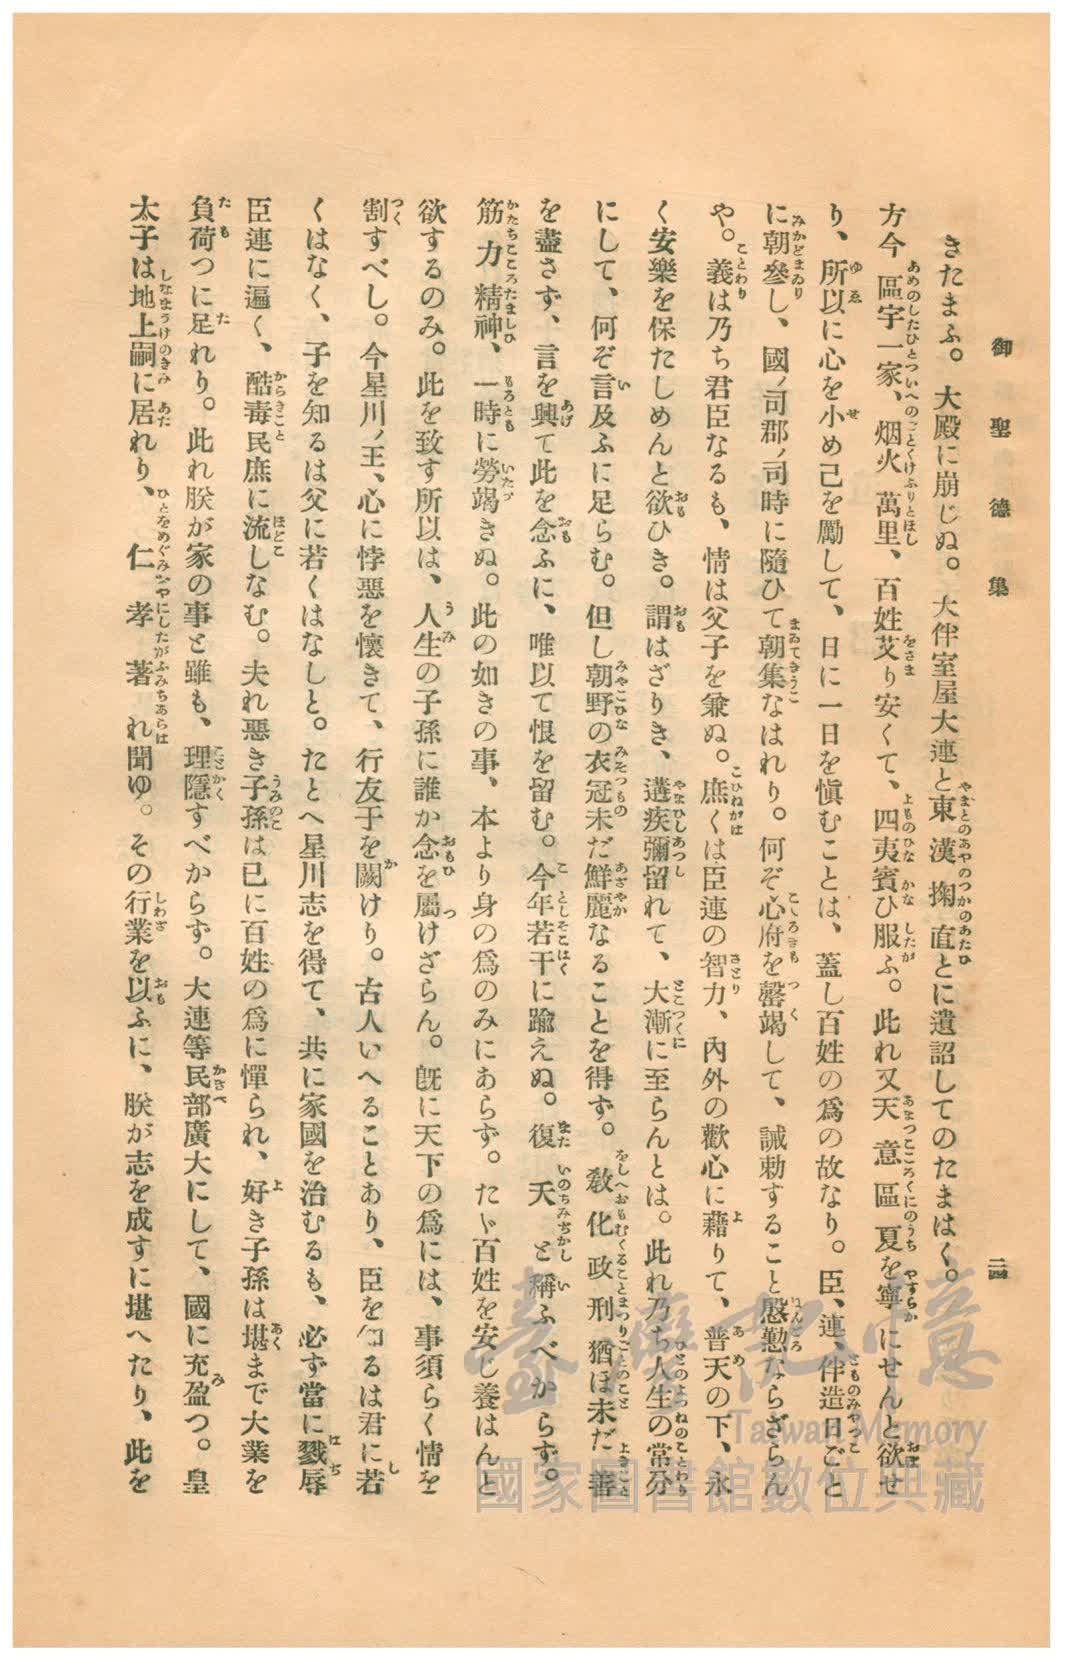 御聖德集
二四
きたまふ。大殿に崩じぬ。大伴室屋大連と東漢掬直とに遺詔してのたまはく。
方今區宇一家、烟火萬里、百姓艾り安くて、四夷賓ひ服ふ。此れ又天意區夏を寧にせんと欲せ
り、所以に心を小め己を勵して、日に一日を愼むことは、蓋し百姓の爲の故なり。臣、連、伴造日ごと
に朝參し、國ノ司郡ノ司時に隨ひて朝集なはれり。何ぞ心府を罄竭して、誡勅すること慇懃ならざらん
や。義は乃ち君臣なるも、情は父子を兼ぬ。庶くは臣連の智力、內外の歡心に藉りて、普天の下、永
く安樂を保たしめんと欲ひき。謂はざりき、遘疾彌留れて、大漸に至らんとは。此れ乃ち人生の常分
にして、何ぞ言及ふに足らむ。但し朝野の衣冠未だ鮮麗なることを得ず。敎化政刑猶ほ未だ善
を盡さず、言を興て此を念ふに、唯以て恨を留む。今年若干に踰えぬ。復夭と稱ふべからず。
筋力精神、一時に勞竭きぬ。此の如きの事、本より身の爲のみにあらず。たゞ百姓を安じ養はんと
欲するのみ。此を致す所以は、人生の子孫に誰か念を屬けざらん。旣に天下の爲には、事須らく情を
割すべし。今星川ノ王、心に悖惡を懷きて、行友于を闕けり。古人いへることあり、臣を知るは君に若
くはなく、子を知るは父に若くはなしと。たとへ星川志を得て、共に家國を治むるも、必ず當に戮辱
臣連に遍く、酷毒民庶に流しなむ。夫れ惡き子孫は已に百姓の爲に憚られ、好き子孫は堪まで大業を
負荷つに足れり。此れ朕が家の事と雖も、理隱すべからず。大連等民部廣大にして、國に充盈つ。皇
太子は地上嗣に居れり、仁孝著れ聞ゆ。その行業を以ふに、朕が志を成すに堪へたり、此を
臺灣記憶
Taiwan Memory
國家圖書館數位典藏